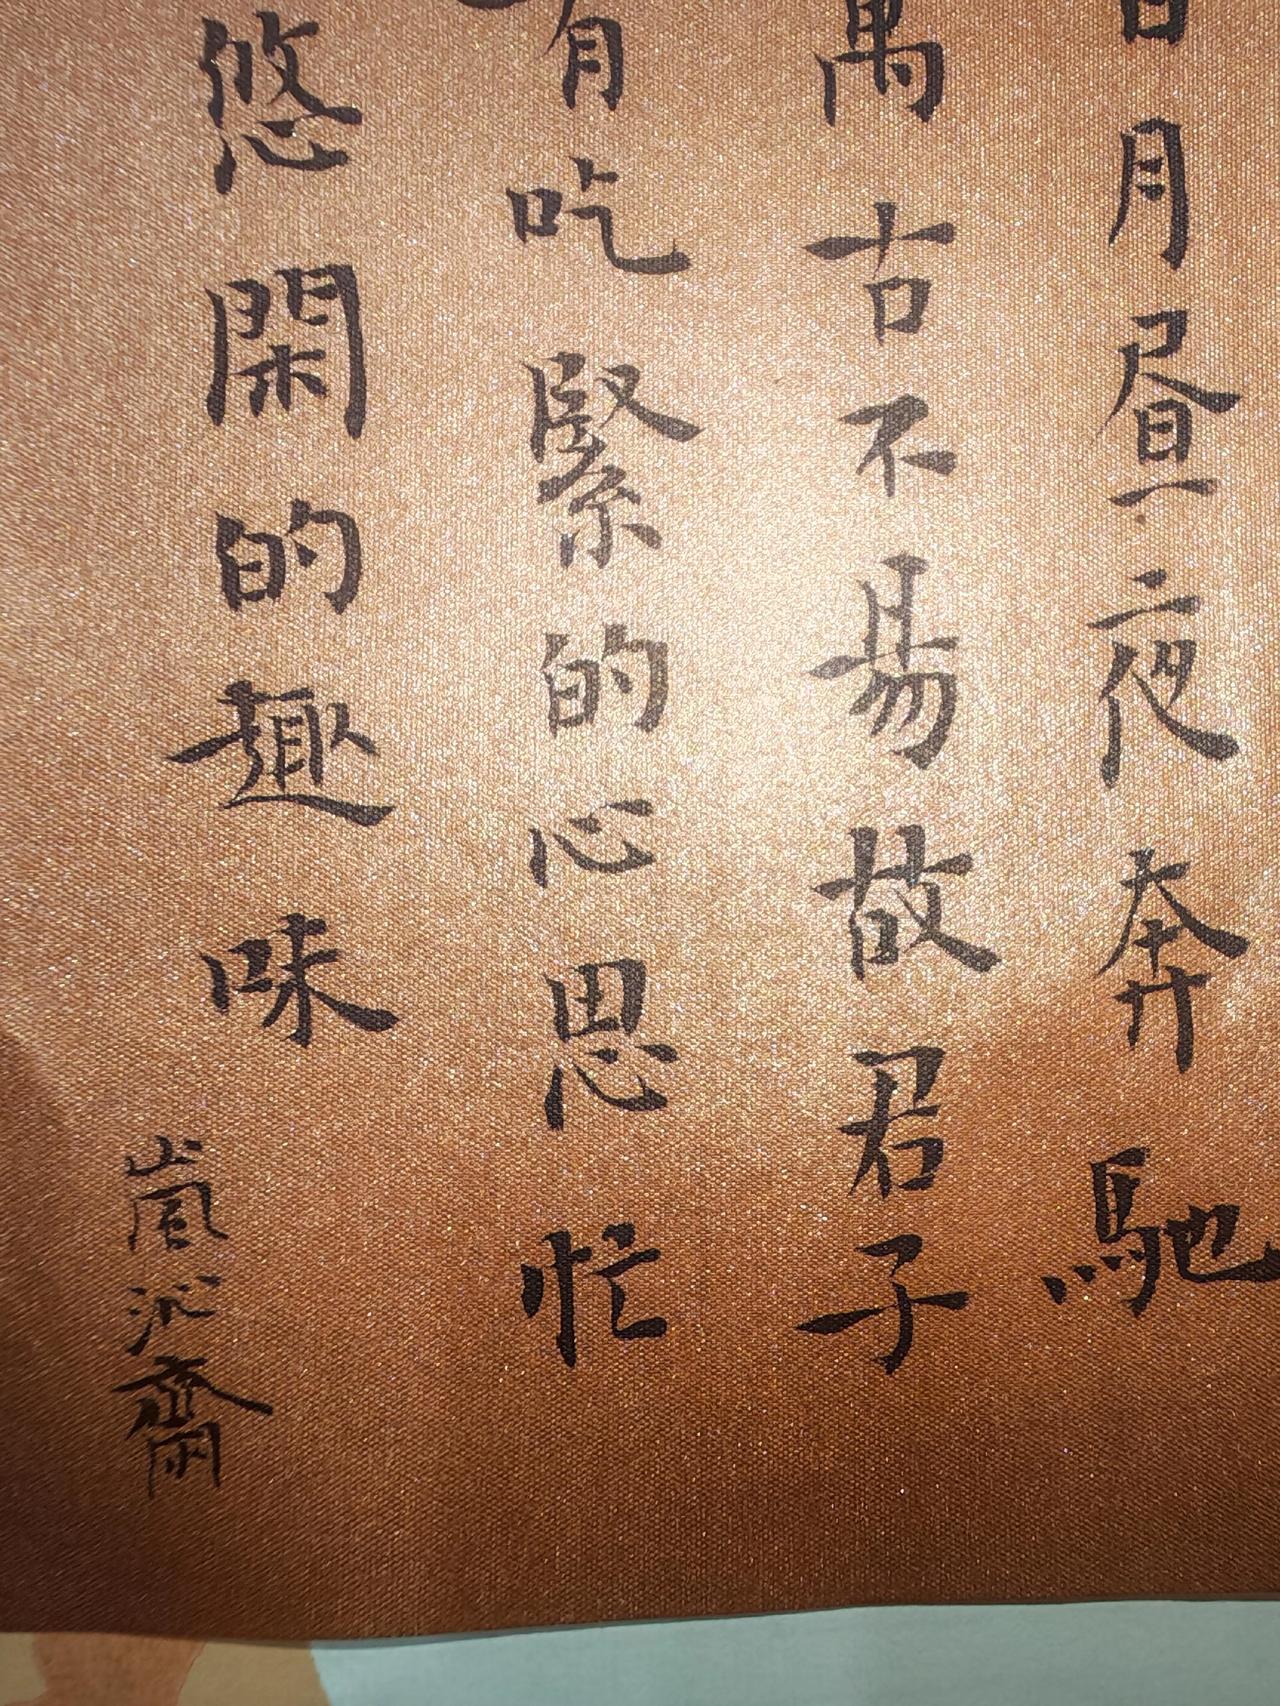 日月昼夜奔馳
萬古不易故君子
有吃緊的心思忙
悠閑的趣味
嵐沁齋